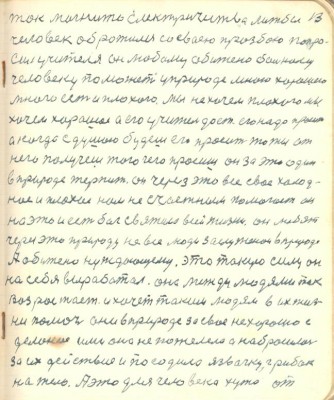 ток магнит Електричества литви 13
человек обротился со своею прозбою попро
сил учителя он любому обижено больному
человеку поможет у природе много хорошего
много есть и плохого. мы не хочем плохого мы
хочем хорошее а его учител даст. его надо просит
а когда с душою будеш его просит то ти от
него получеш того чего просиш он за это один
в природе терпит. он через это все свое холод-
ное и плохое нам не счастним помогает он
на это и есть бог святой в жизни. он любит
через это природу не все люди
А обижено нуждающему. это такую силу он
на себя выработал. она между людями так
возростает. и хочет таким людям в их жиз-
ни помоч они в природе за свое нехорошо с
деланое им она не потжелела а набросилас
за их действие и посодила язвочку, грибок
на тело. А это для человека худо от